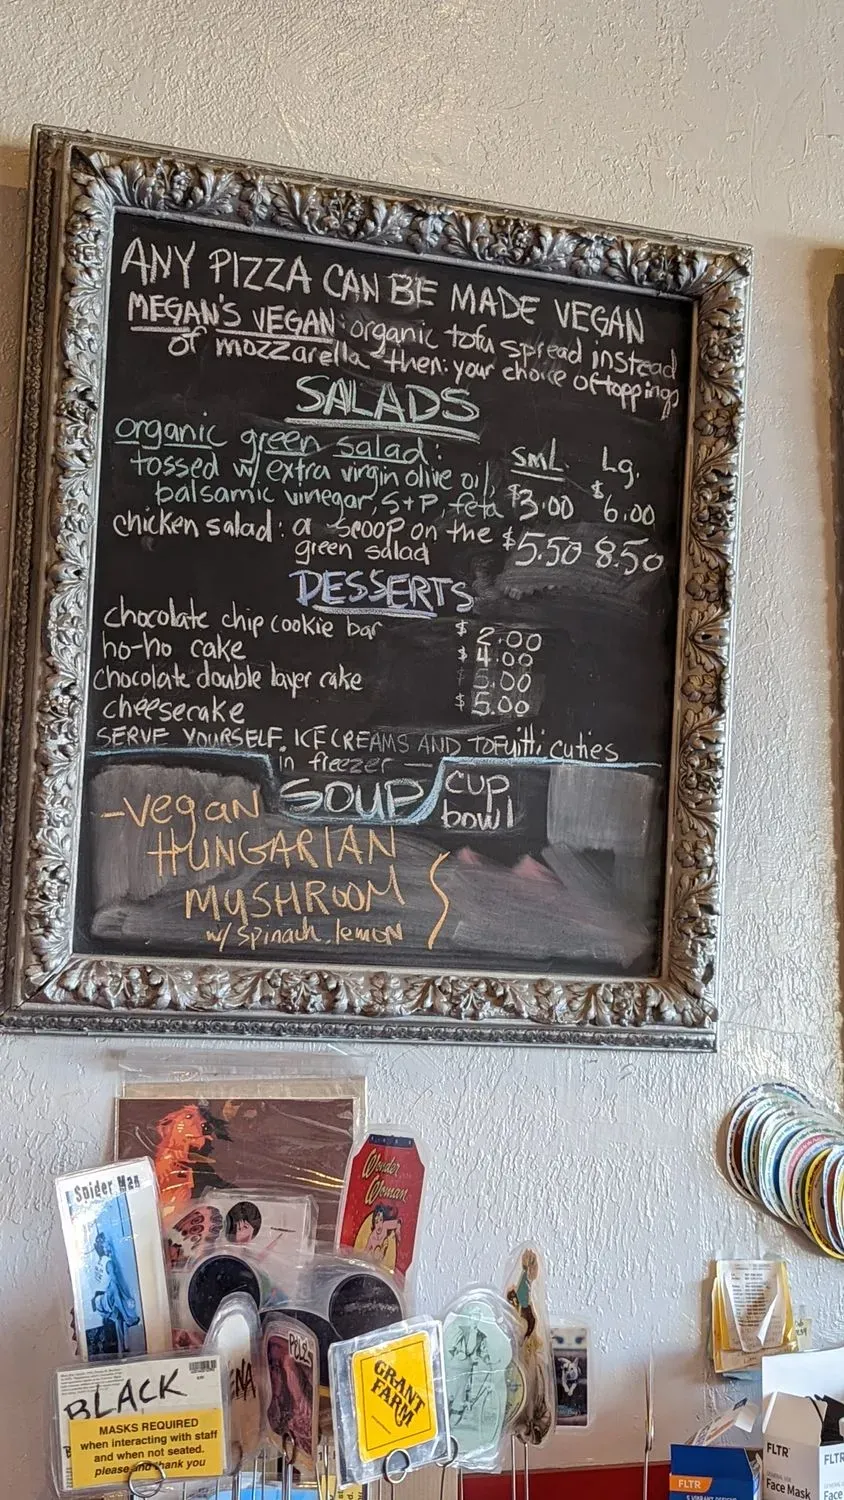 ANY PIZZA CAN BE MADE VEGAN
MEGAN'S VEGAN: organic tofu spread instead
of mozzarella then: your choice of toppings
SALADS
organic green salad: SML Lg.
tossed w/ extra virgin olive oil,
balsamic vinegar, S+P, feta $3.00 $6.00
chicken salad: a scoop on the $5.50 8.50
green salad
DESSERTS
chocolate chip cookie bar $2.00
ho-ho cake $4.00
chocolate double layer cake $5.00
cheesecake $5.00
SERVE YOURSELF. ICE CREAMS AND TOFUTTI CUTIES
in freezer —
SOUP cup
bowl
-vegan
HUNGARIAN
MUSHROOM
w/ spinach, lemon
Spider Man
Wonder
Woman
GRANT
FARM
BLACK
MASKS REQUIRED
when interacting with staff
and when not seated.
please and thank you
FLTR
FLTR
Face Mask